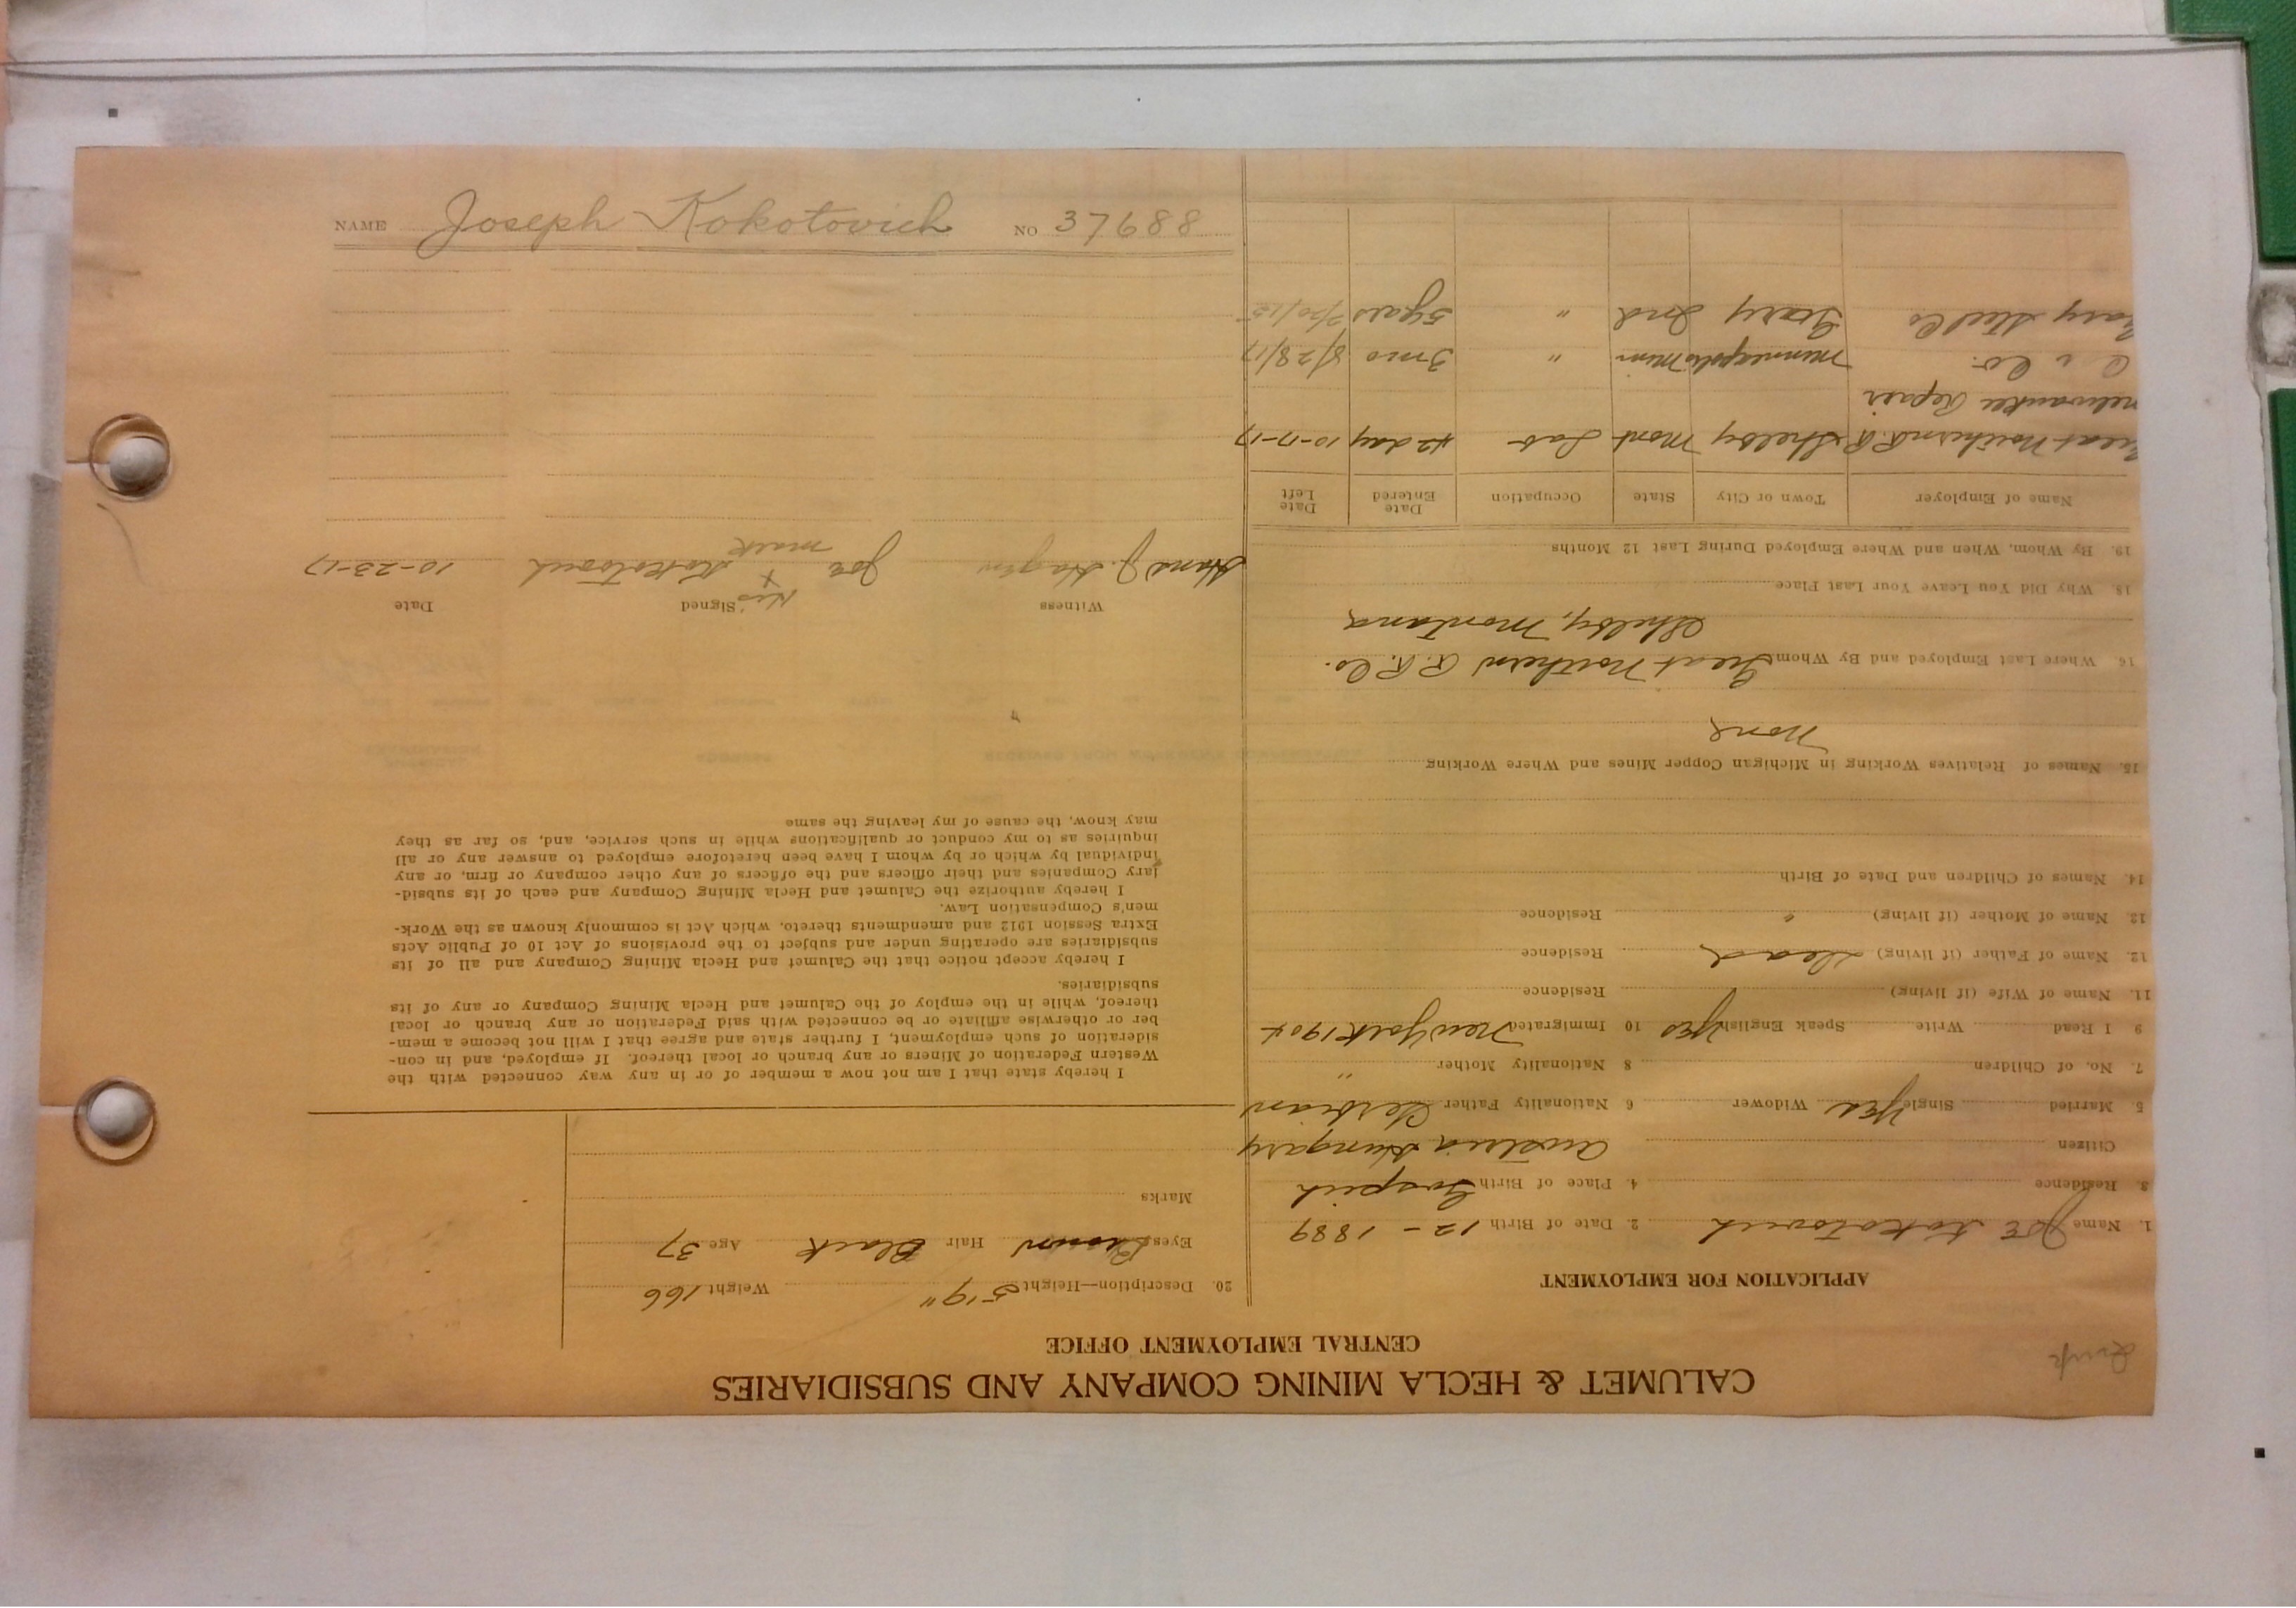 CALUMET & HECLA MINING COMPANY AND SUBSIDIARIES
CENTRAL EMPLOYMENT OFFICE
APPLICATION FOR EMPLOYMENT
1. Name Joe Kokotovich 2. Date of Birth 12 - 1889
3. Residence 4. Place of Birth Gospich
Citizen Austria Hungary
5 Married Single Yes Widower 6 Nationality Father Serbian
7. No. of Children 8 Nationality Mother "
9 I Read Write Speak English Yes 10 Immigrated New York 1904
11. Name of Wife (if living) Residence
12. Name of Father (if living) Dead Residence
12. Name of Mother (if living) " Residence
14. Names of Children and Date of Birth
15. Names of Relatives Working in Michigan Copper Mines and Where Working
None
16 Where Last Employed and By Whom Great Northern R.R. Co.
Shelby, Montana
18. Why Did You Leave Your Last Place
19. By Whom, When and Where Employed During Last 12 Months
Name of Employer Town or City State Occupation Date Entered Date Left
Great Northern R.R. Shelby Mont Lab 42 day 10-17-17
Milwaukee Repair
Co. Minneapolis Minn " 3 mo 8/28/17
Gary Steel Co Gary Ind " 5 years
20. Description—Height 5'9" Weight 166
Eyes Brown Hair Black Age 37
Marks
I hereby state that I am not now a member of or in any way connected with the
Western Federation of Miners or any branch or local thereof. If employed, and in con-
sideration of such employment, I further state and agree that I will not become a mem-
ber or otherwise affiliate or be connected with said Federation or any branch or local
thereof, while in the employ of the Calumet and Hecla Mining Company or any of its
subsidiaries.
I hereby accept notice that the Calumet and Hecla Mining Company and all of its
subsidiaries are operating under and subject to the provisions of Act 10 of Public Acts
Extra Session 1912 and amendments thereto, which Act is commonly known as the Work-
men's Compensation Law.
I hereby authorize the Calumet and Hecla Mining Company and each of its subsid-
iary Companies and their officers and the officers of any other company or firm, or any
individual by which or by whom I have been heretofore employed to answer any or all
inquiries as to my conduct or qualifications while in such service, and, so far as they
may know, the cause of my leaving the same
Witness Signed Date
His
Hans J. Hagen Joe X Kokotovich 10-23-17
mark
NAME Joseph Kokotovich NO 37688